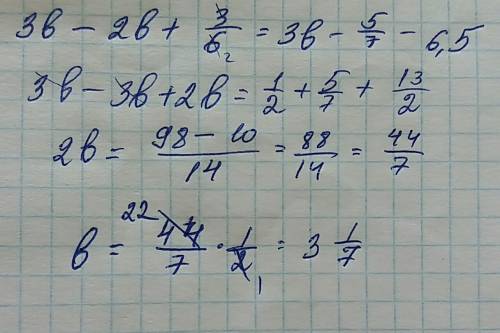 3в − 2в + 3/6 2 = 3в − 5/7 − 6,5
3в − 3в + 2в = 1/2 + 5/7 + 13/2
2в = 98 − 10/14 = 88/14 = 44/7
в = 22 44/7 · 1/2 1 = 3 1/7